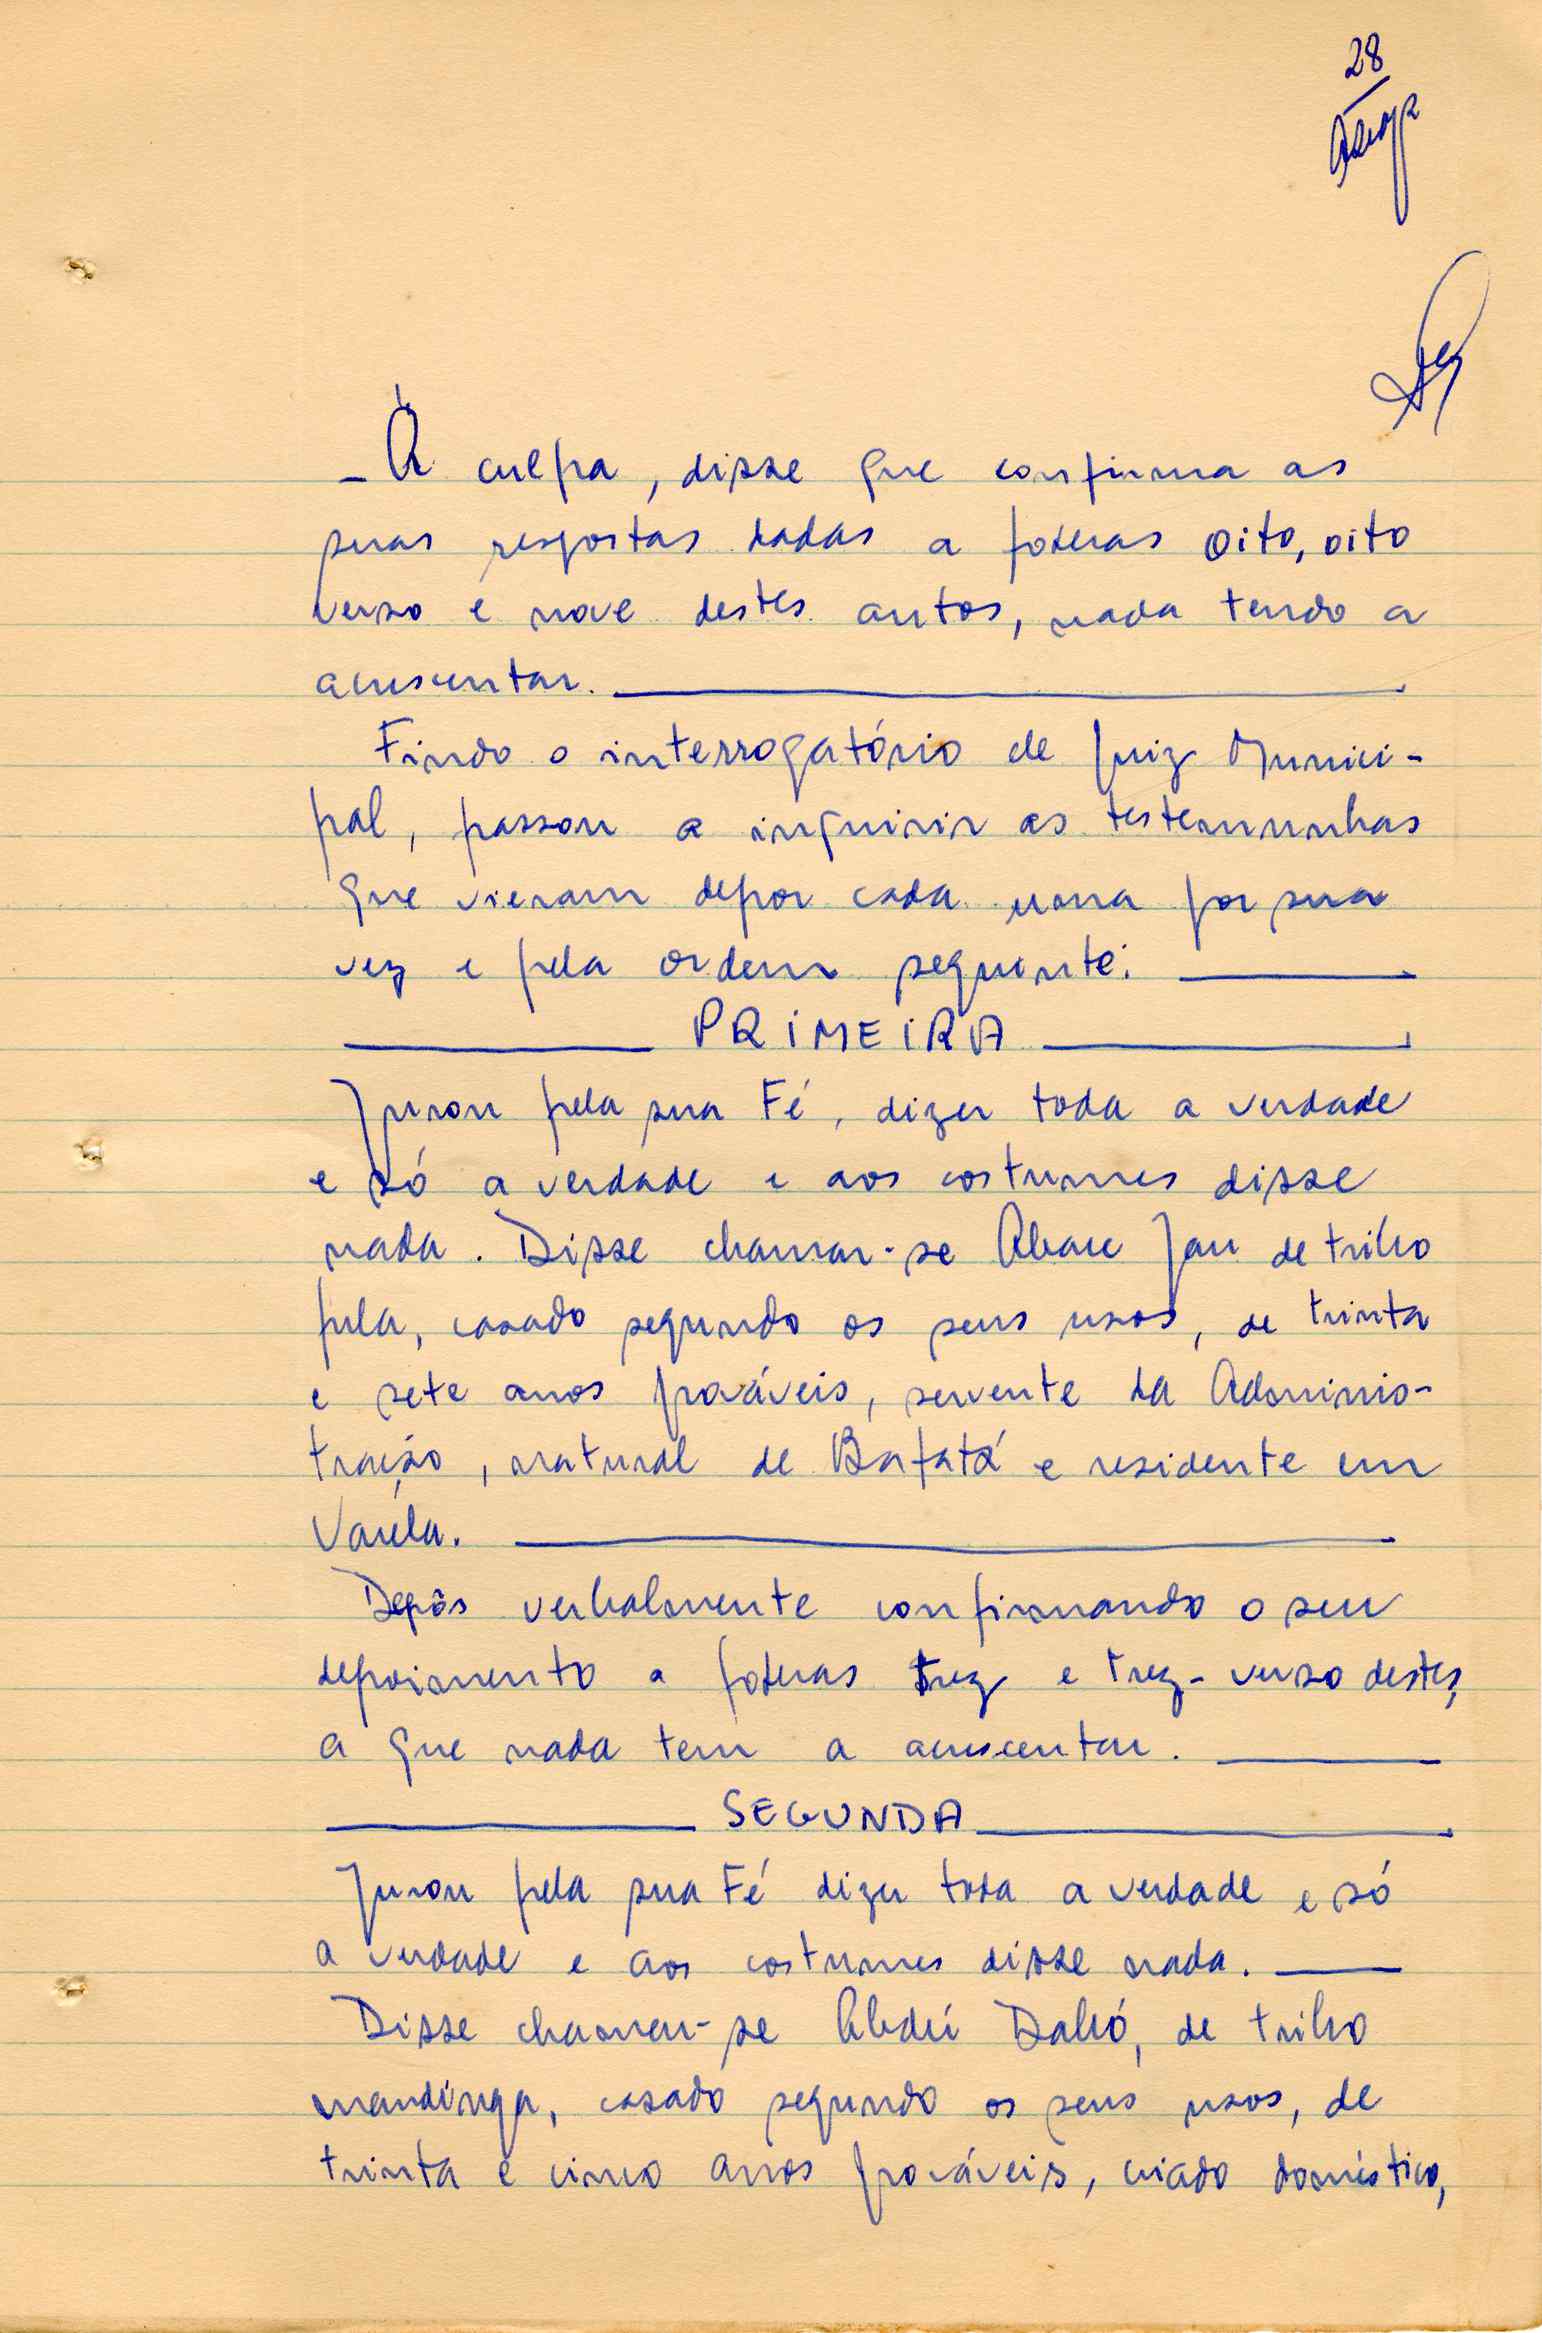 28
- À culpa, disse que confirma as
suas respostas dadas a folhas oito, oito
verso e nove destes autos, nada tendo a
acrescentar.
Findo o interrogatório de Juiz Munici-
pal, passou a inquirir as testemunhas
que vieram depor cada uma por sua
vez e pela ordem seguinte:
PRIMEIRA
Jurou pela sua Fé, dizer toda a verdade
e só a verdade e aos costumes disse
nada. Disse chamar-se Jau de tribo
fula, casado segundo os seus usos, de trinta
e sete anos prováveis, servente da Adminis-
tração, natural de Bafatá e residente em
Varela.
Depôs verbalmente confirmando o seu
depoimento a folhas trez e trez-verso destes,
a que nada tem a acrescentar.
SEGUNDA
Jurou pela sua Fé dizer toda a verdade e só
a verdade e aos costumes disse nada.
Disse chamar-se Dabó, de tribo
mandinga, casado segundo os seus usos, de
trinta e cinco anos prováveis, criado doméstico,